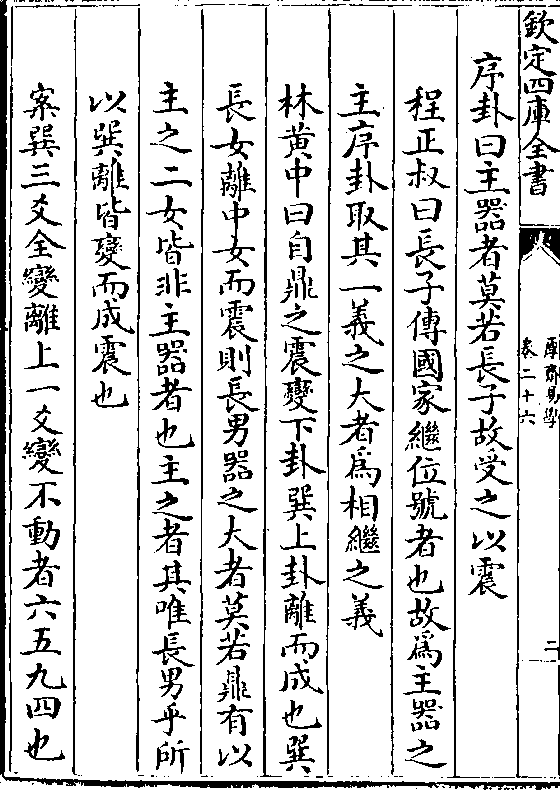 欽定四庫全書
厚齋易學
卷二十六
二
序卦曰主器者莫若長子故受之以震
程正叔曰長子傳國家繼位號者也故為主器之
主序卦取其一義之大者為相繼之義
林黃中曰自鼎之震變下卦巽上卦離而成也巽
長女離中女而震則長男器之大者莫若鼎有以
主之二女皆非主器者也主之者其唯長男乎所
以巽離皆變而成震也
案巽三爻全變離上一爻變不動者六五九四也